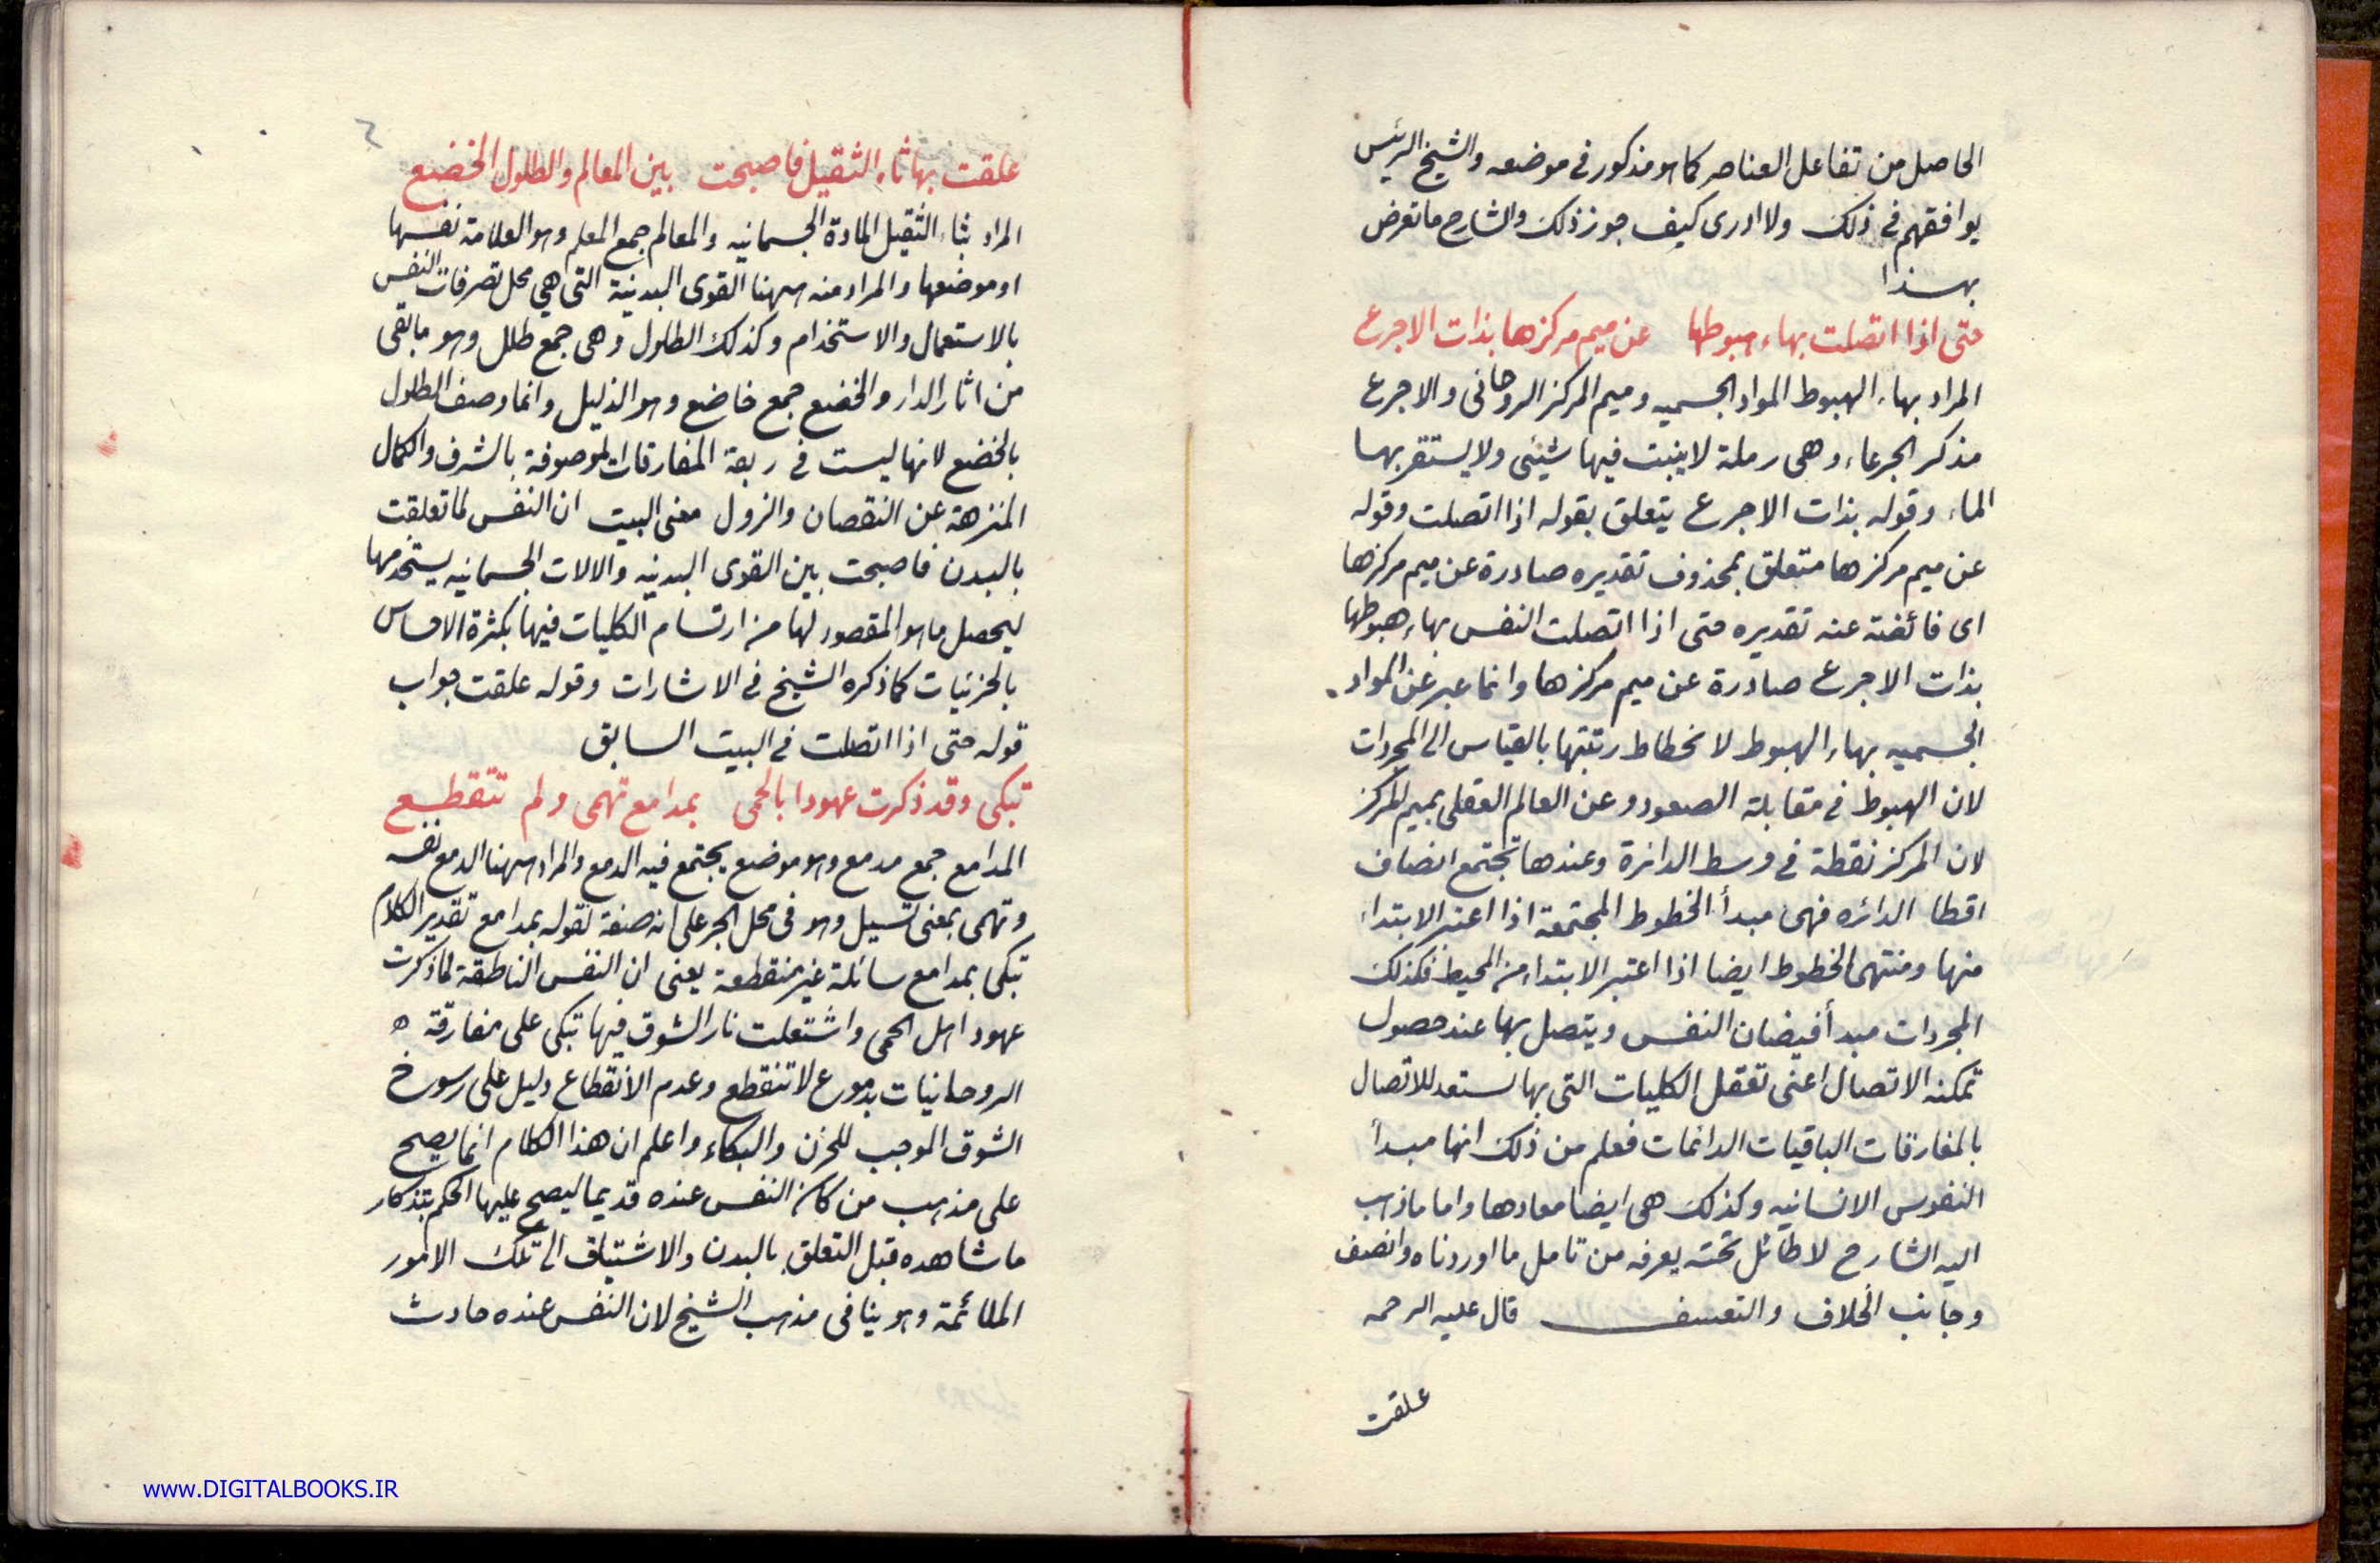 الحاصل من تفاعل العناصر كما هو مذكور في موضعه والشيخ الرئيس
يوافقهم في ذلك ولا ادرى كيف جوز ذلك والشارح ما تعرض
بهذا
حتى اذا اتصلت بهاء هبوطها عن ميم مركزها بذات الاجرع
المراد بهاء الهبوط المواد الجسميه وميم المركز الروحانى والاجرع
مذكر الجرعاء وهى رملة لا ينبت فيها شيئى ولا يستقر بها
الماء وقوله بذات الاجرع يتعلق بقوله اذا اتصلت وقوله
عن ميم مركزها متعلق بمحذوف تقديره صادرة عن ميم مركزها
اى فائضة عنه تقديره حتى اذا اتصلت النفس بهاء هبوطها
بذات الاجرع صادرة عن ميم مركزها وانما عبر عن المواد
الجسميه بهاء الهبوط لانحطاط رتبتها بالقياس الى المجردات
لان الهبوط في مقابلة الصعود وعن العالم العقلى بميم المركز
لان المركز نقطة في وسط الدائرة وعندها تجتمع انصاف
اقطا الدائره فهى مبدأ الخطوط المجتمعة اذا اعتبر الابتداء
منها ومنتهى الخطوط ايضا اذا اعتبر الابتداء من المحيط فكذلك
المجردات مبدأ فيضان النفس ويتصل بها عند حصول
تمكنه الاتصال اعنى تعقل الكليات التى بها تستعد للاتصال
بالمفارقات الباقيات الدائمات فعلم من ذلك انها مبدأ
النفوس الانسانيه وكذلك هى ايضا معادها واما ما ذهب
اليه الشارح لا طائل تحته يعرفه من تامل ما اوردناه وانصف
وجانب الخلاف والتعسف قال عليه الرحمه
علقت
علقت بها ثاء الثقيل فاصبحت بين المعالم والطلول الخضع
المراد بثاء الثقيل المادة الجسمانيه والمعالم جمع المعلم وهو العلامة نفسها
او موضعها والمراد منه ههنا القوى البدنية التى هي محل تصرفات النفس
بالاستعمال والاستخدام وكذلك الطلول وهى جمع طلل وهو ما بقى
من اثار الدار والخضع جمع خاضع وهو الذليل وانما وصف الطلول
بالخضع لانها ليست في ربعة المفارقات الموصوفة بالشرف والكمال
المنزهة عن النقصان والزول معنى البيت ان النفس لما تعلقت
بالبدن فاصبحت بين القوى البدنيه والالات الجسمانيه يستخدمها
ليحصل ما هو المقصود لها من ارتسام الكليات فيها بكثرة الاحساس
بالجزئيات كما ذكره الشيخ في الاشارات وقوله علقت جواب
قوله حتى اذا اتصلت في البيت السابق
تبكى وقد ذكرت عهودا بالحمى بمدامع تهمى ولم تتقطع
المدامع جمع مدمع وهو موضع يجتمع فيه الدمع والمراد ههنا الدمع نفسه
وتهمى بمعنى تسيل وهو فى محل الجر على انه صفة لقوله بمدامع تقدير الكلام
تبكى بمدامع سائلة غير منقطعة يعنى ان النفس الناطقة لما ذكرت
عهود اهل الحمى واشتعلت نار الشوق فيها تبكى على مفارقة ه
الروحانيات بدموع لا تنقطع وعدم الانقطاع دليل على رسوخ
الشوق الموجب للحزن والبكاء واعلم ان هذا الكلام انما يصح
على مذهب من كان النفس عنده قديما ليصح عليها الحكم بتذكار
ما شاهده قبل التعلق بالبدن والاشتياق الى تلك الامور
الملائمة وهو ينافى مذهب الشيخ لان النفس عنده حادث
www.DIGITALBOOKS.IR